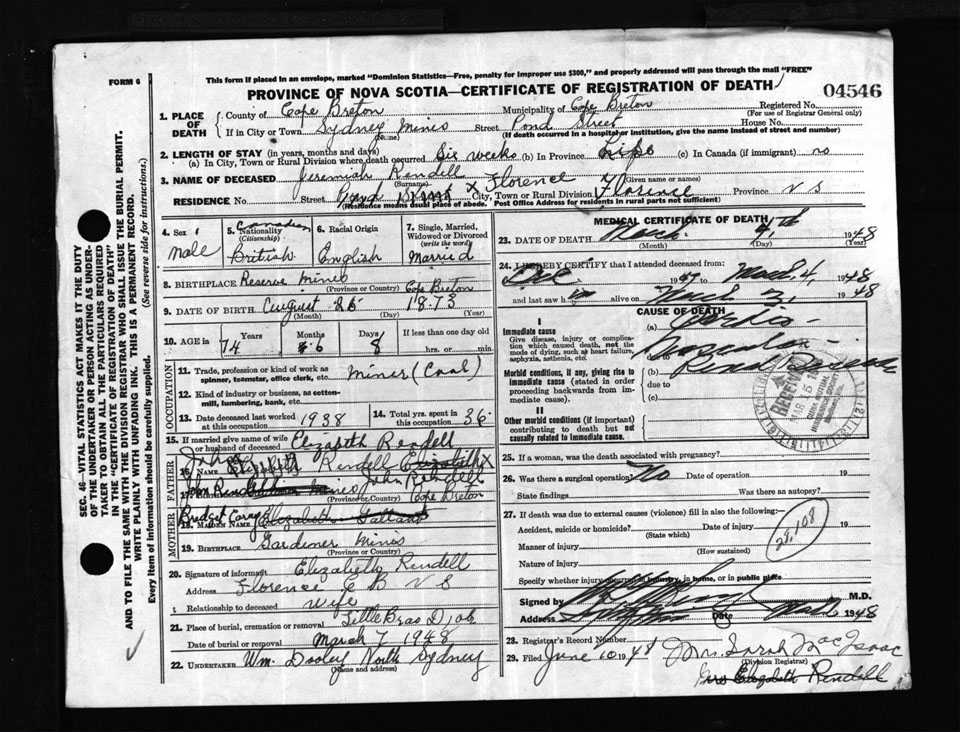 FORM 6
This form if placed in an envelope, marked "Dominion Statistics—Free, penalty for improper use $300," and properly addressed will pass through the mail "FREE"
PROVINCE OF NOVA SCOTIA—CERTIFICATE OF REGISTRATION OF DEATH
04546
1. PLACE OF DEATH
County of Cape Breton Municipality of Cape Breton Registered No.
(For use of Registrar General only)
If in City or Town Sydney Mines Street Pond Street House No.
(Name) (If death occurred in a hospital or institution, give the name instead of street and number)
2. LENGTH OF STAY (in years, months and days)
(a) In City, Town or Rural Division where death occurred Six weeks (b) In Province Life (c) In Canada (if immigrant) no
3. NAME OF DECEASED Jeremiah Rendell
(Surname) (Given name or names)
RESIDENCE No. Street Pond Street X Florence City, Town or Rural Division Florence Province N S
(Residence means usual place of abode. Post Office Address for residents in rural parts not sufficient)
4. Sex Male
5. Nationality (Citizenship) Canadian British
6. Racial Origin English
7. Single, Married, Widowed or Divorced (write the word) Married
8. BIRTHPLACE Reserve Mines Cape Breton
(Province or Country)
9. DATE OF BIRTH August 26 1873
(Month) (Day) (Year)
10. AGE in Years 74 Months 6 Days 8 If less than one day old hrs. or min.
OCCUPATION
11. Trade, profession or kind of work as spinner, teamster, office clerk, etc. Miner (Coal)
12. Kind of industry or business, as cotton-mill, lumbering, bank, etc.
13. Date deceased last worked at this occupation 1938
14. Total yrs. spent in this occupation 36
15. If married give name of wife or husband of deceased Elizabeth Rendell
FATHER
John
16. NAME Elizabeth Rendell Elizabeth X
John Rendell
17. John Rendell Mines Cape Breton
(Province or Country)
MOTHER
Bridget Carey
18. MAIDEN NAME Elizabeth
19. BIRTHPLACE Gardiner Mines
(Province or Country)
20. Signature of informant Elizabeth Rendell
Address Florence C B N S
Relationship to deceased Wife
21. Place of burial, cremation or removal Little Bras D'Or
Date of burial or removal March 7 1948
22. UNDERTAKER Wm. Dooley North Sydney
(Name and address)
MEDICAL CERTIFICATE OF DEATH
23. DATE OF DEATH March 4th 1948
(Month) (Day) (Year)
24. I HEREBY CERTIFY that I attended deceased from:
Dec 1947 to March 4, 1948
and last saw him alive on March 3, 1948
CAUSE OF DEATH
I
Immediate cause
Give disease, injury or complication which caused death, not the mode of dying, such as heart failure, asphyxia, asthenia, etc.
(a) Cardio-
due to
Renal Disease
Morbid conditions, if any, giving rise to immediate cause (stated in order proceeding backwards from immediate cause).
(b)
due to
(c)
II
Other morbid conditions (if important) contributing to death but not causally related to immediate cause.
RECEIVED
MAR 15
25. If a woman, was the death associated with pregnancy?
26. Was there a surgical operation? No Date of operation 19
State findings Was there an autopsy?
27. If death was due to external causes (violence) fill in also the following:—
Accident, suicide or homicide? Date of injury 19
(State which)
Manner of injury
(How sustained)
Nature of injury
Specify whether injury occurred in industry, in home, or in public place
Signed by M.D.
Address 1948
28. Registrar's Record Number
29. Filed June 10 1948 Mrs. Sarah MacIsaac
(Division Registrar)
Mrs Elizabeth Rendell
SEC. 46—VITAL STATISTICS ACT MAKES IT THE DUTY
OF THE UNDERTAKER OR PERSON ACTING AS UNDER-
TAKER TO OBTAIN ALL THE PARTICULARS REQUIRED
IN THE "CERTIFICATE OF REGISTRATION OF DEATH"
AND TO FILE THE SAME WITH THE DIVISION REGISTRAR WHO SHALL ISSUE THE BURIAL PERMIT.
WRITE PLAINLY WITH UNFADING INK. THIS IS A PERMANENT RECORD.
Every item of information should be carefully supplied. (See reverse side for instructions.)